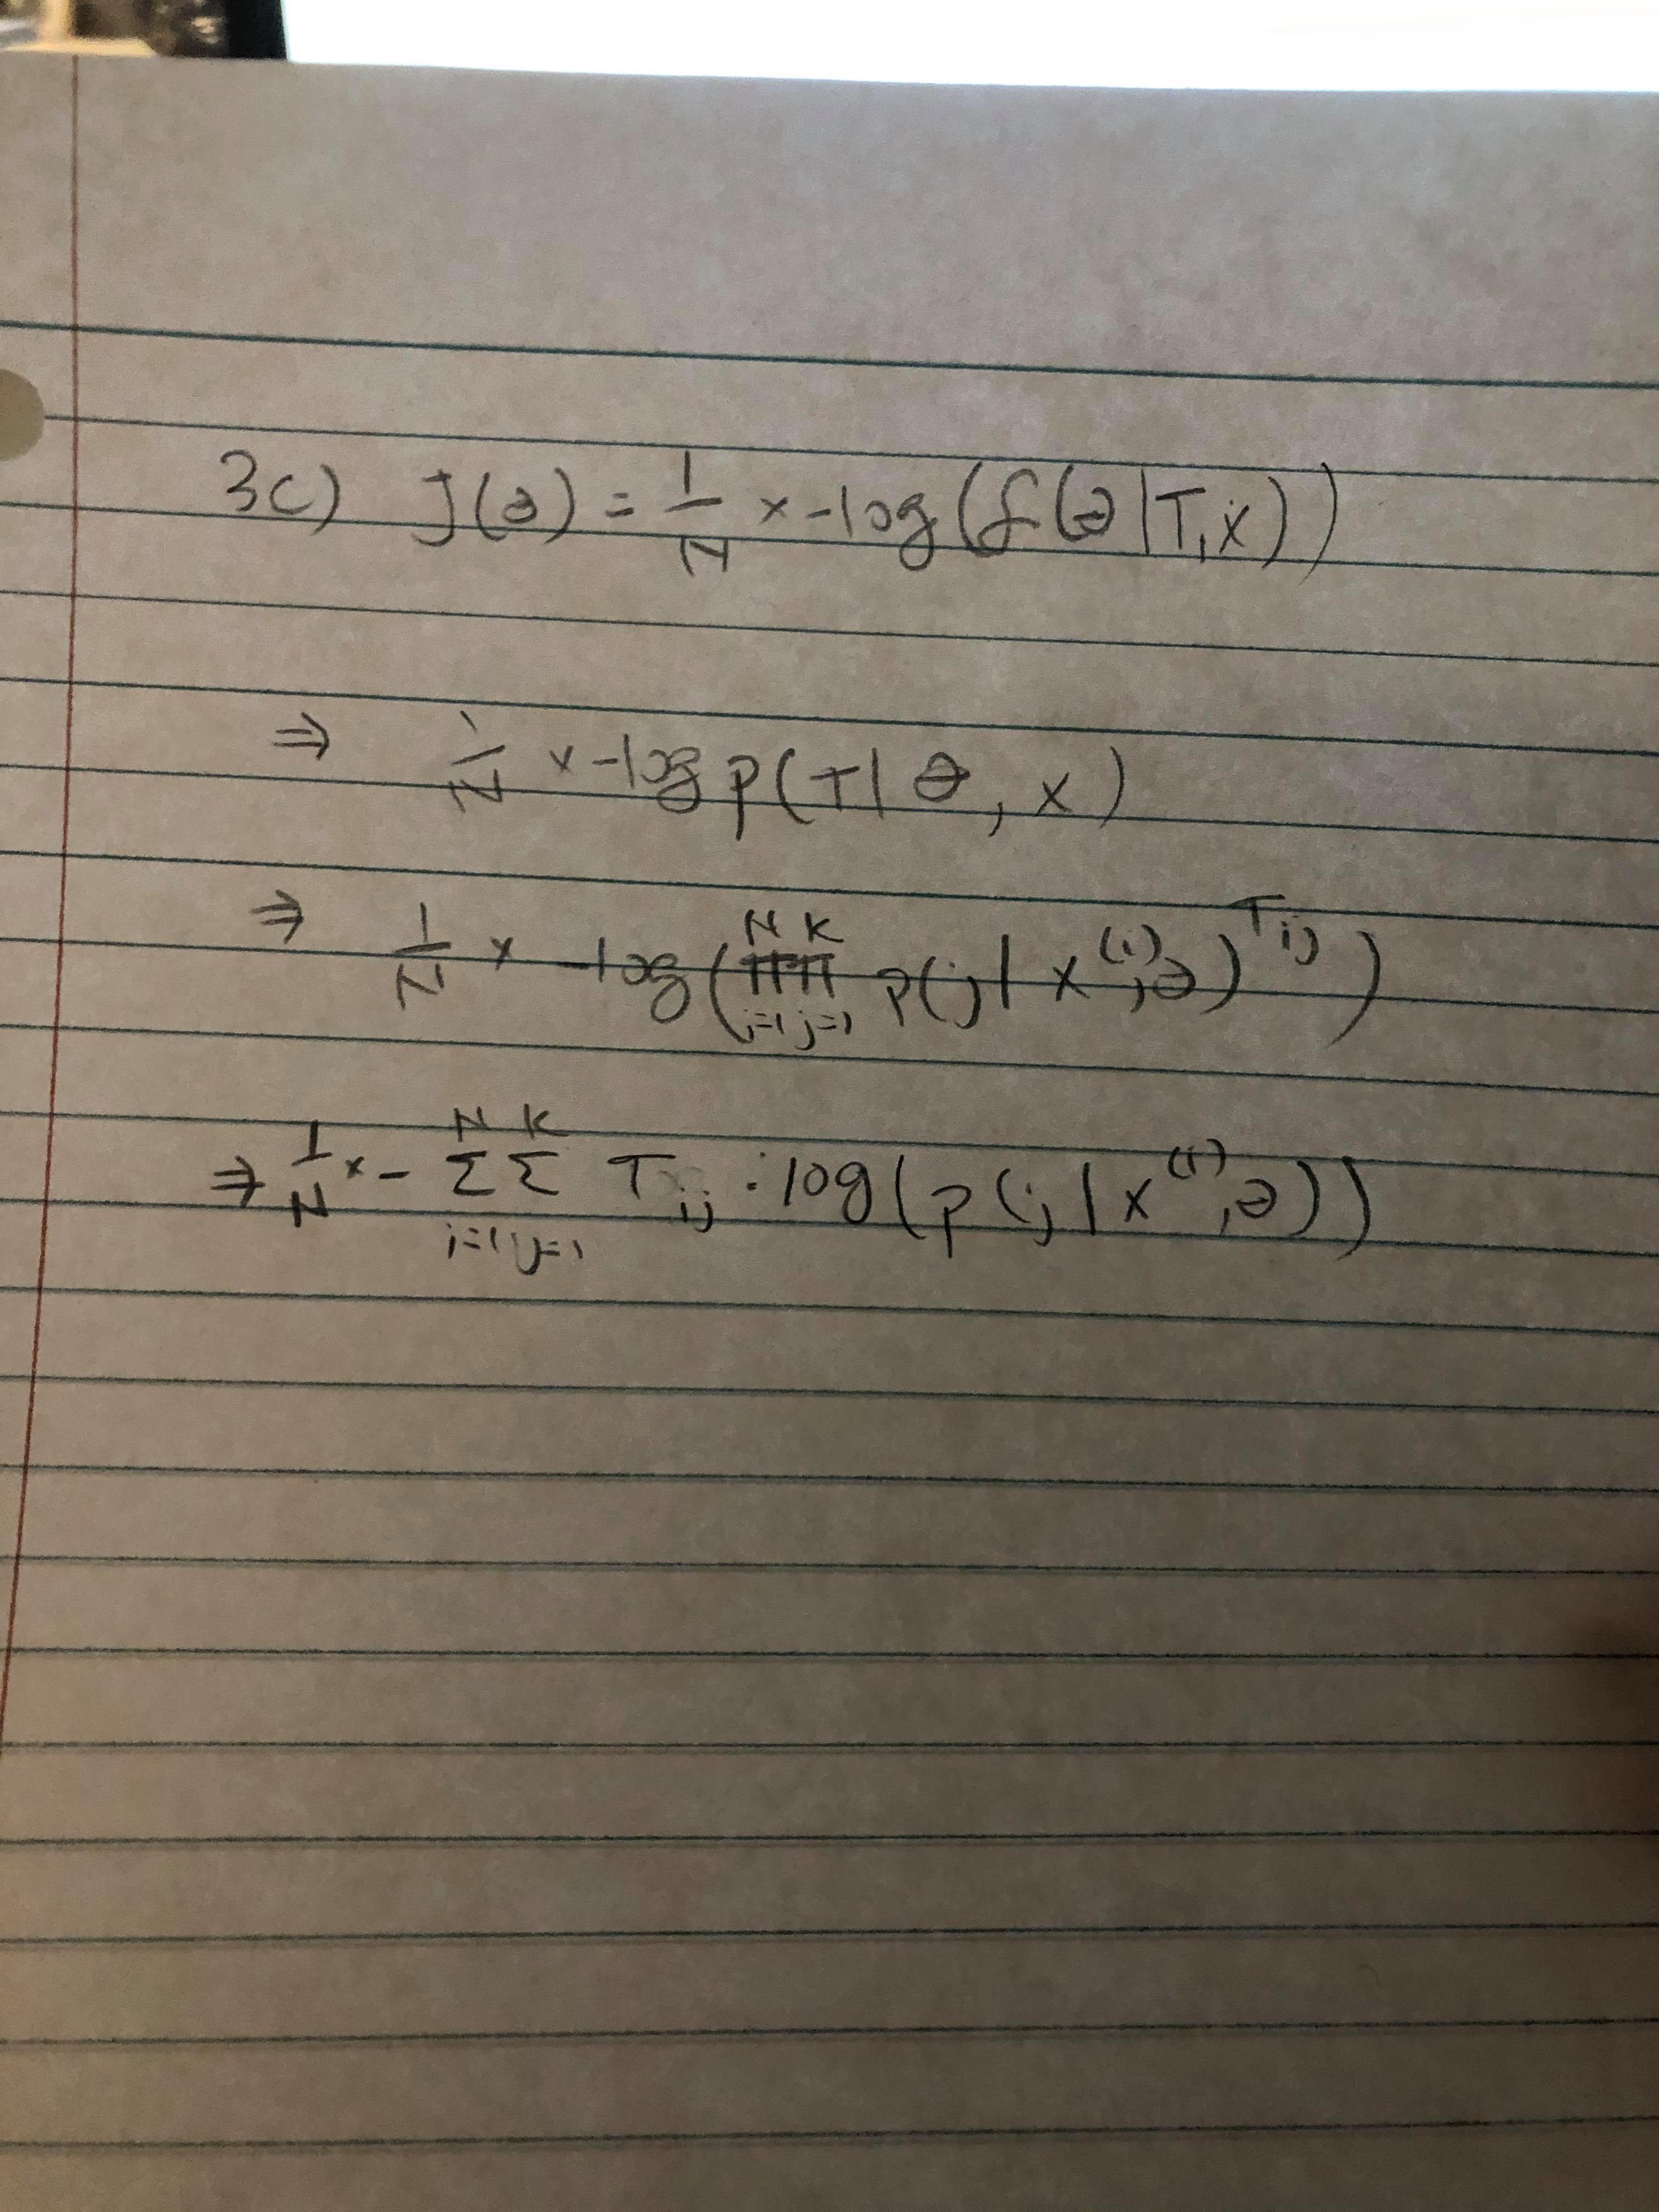 3c) J(θ) = 1/N × -log(f(θ|T,X))
⇒ 1/N × -log p(T|θ, X)
⇒ 1/N × -log(∏_{i=1}^{N} ∏_{j=1}^{K} p(j|x^{(i)},θ)^{T_{ij}})
⇒ 1/N × - Σ_{i=1}^{N} Σ_{j=1}^{K} T_{ij} · log(p(j|x^{(i)},θ))